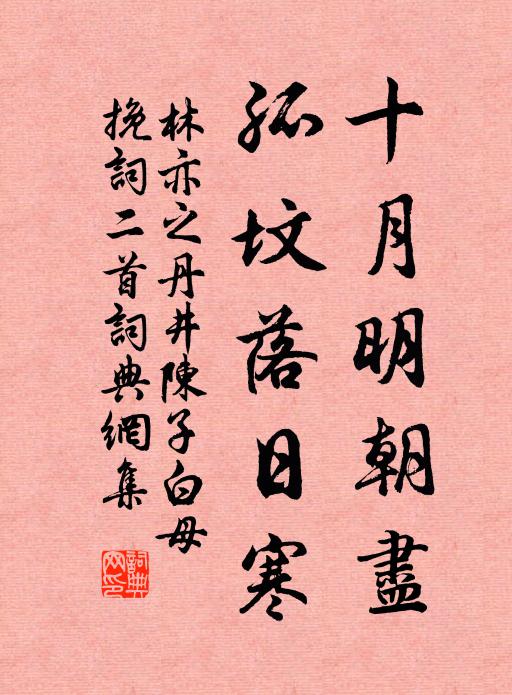 十月明朝盡
孤墳落日寒
林亦之丹井陳子白母
挽詞二首詞典網集
詞典網印